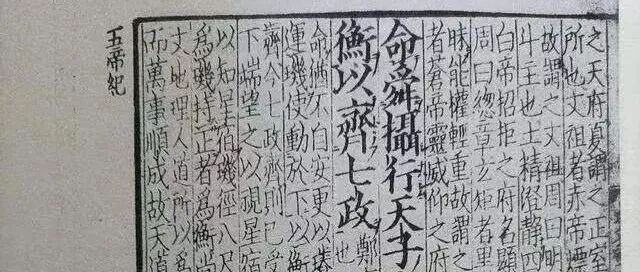 之天府夏謂之正室
所也文祖者赤帝熛
故謂之文祖周曰明
斗主也土精澄静四
白帝招拒之府名顯
周曰緫章玄矩者黒
昧能權輕重故謂之
者蒼帝靈威仰之府
命舜攝行天子
衡以齊七政鄭也
命猶不自安更以璿
運璣使動於下以
齊今七政齊則已受
下端望之以視星宿
以知星宿璣徑八尺
為璣持正者為衡
文地理人道所以為
而萬事順成故天道
五帝紀